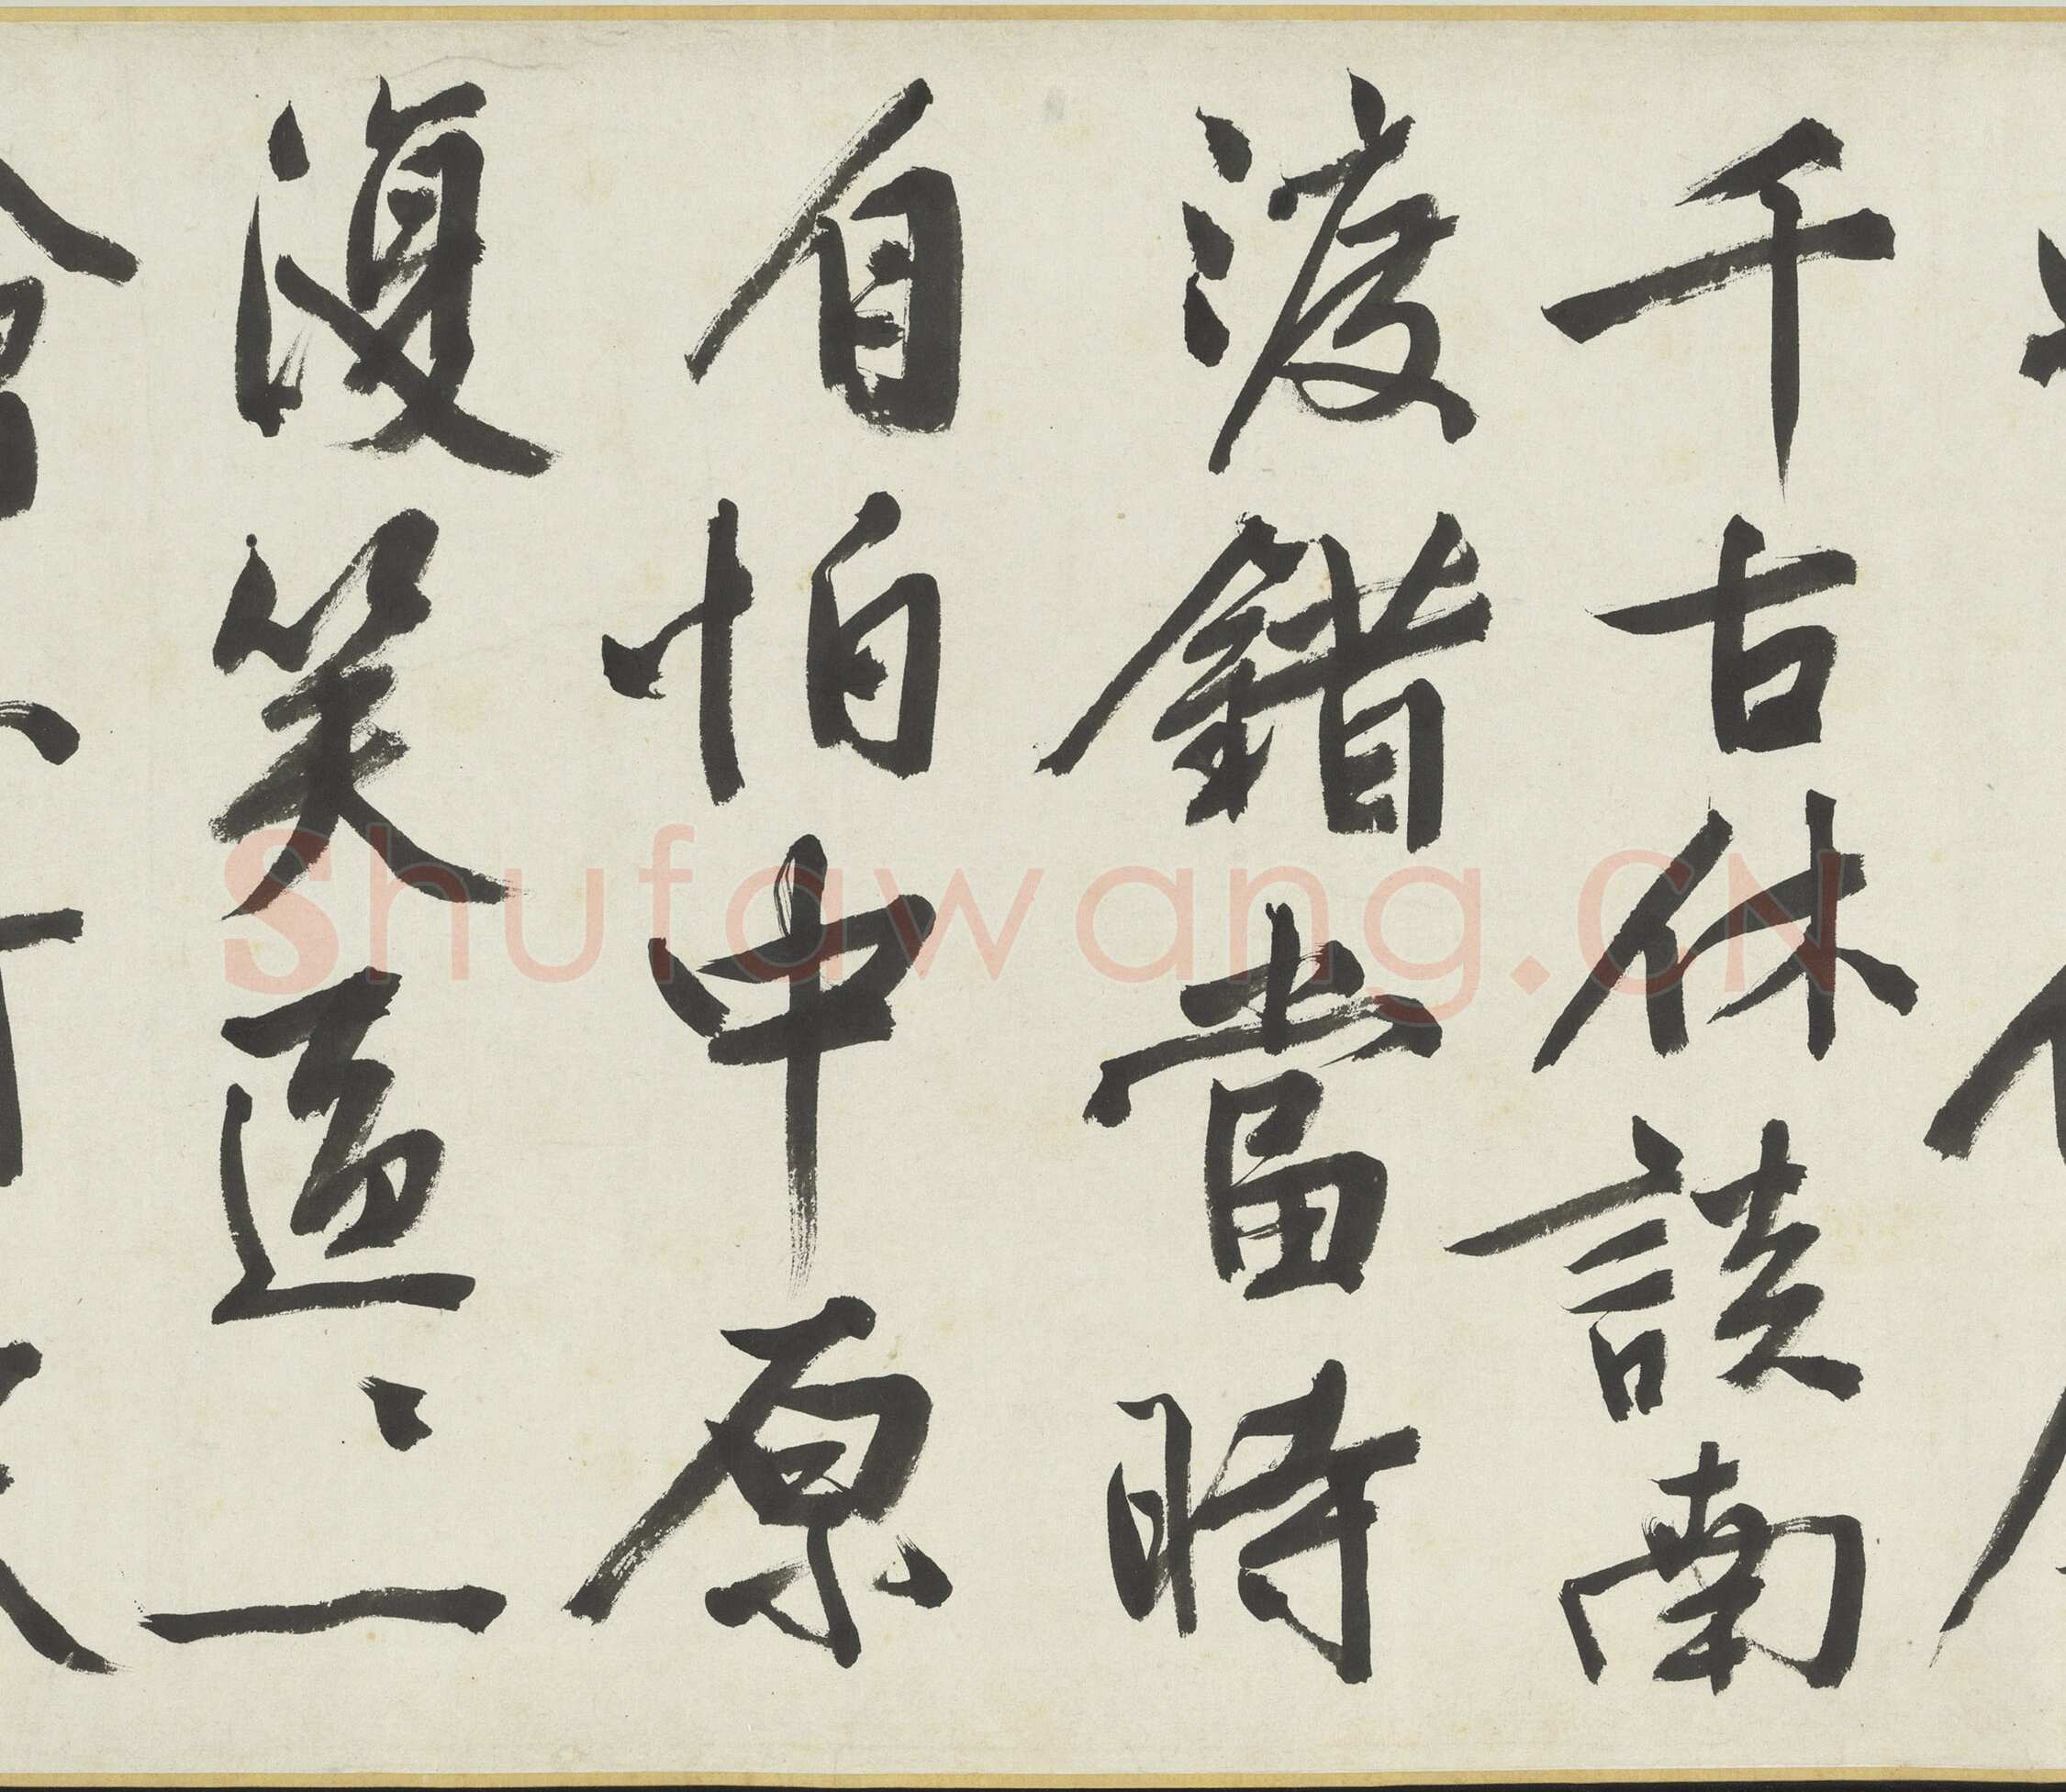 千古休談南
渡錯當時
自怕中原
復笑區〻一
Shufawang.CN